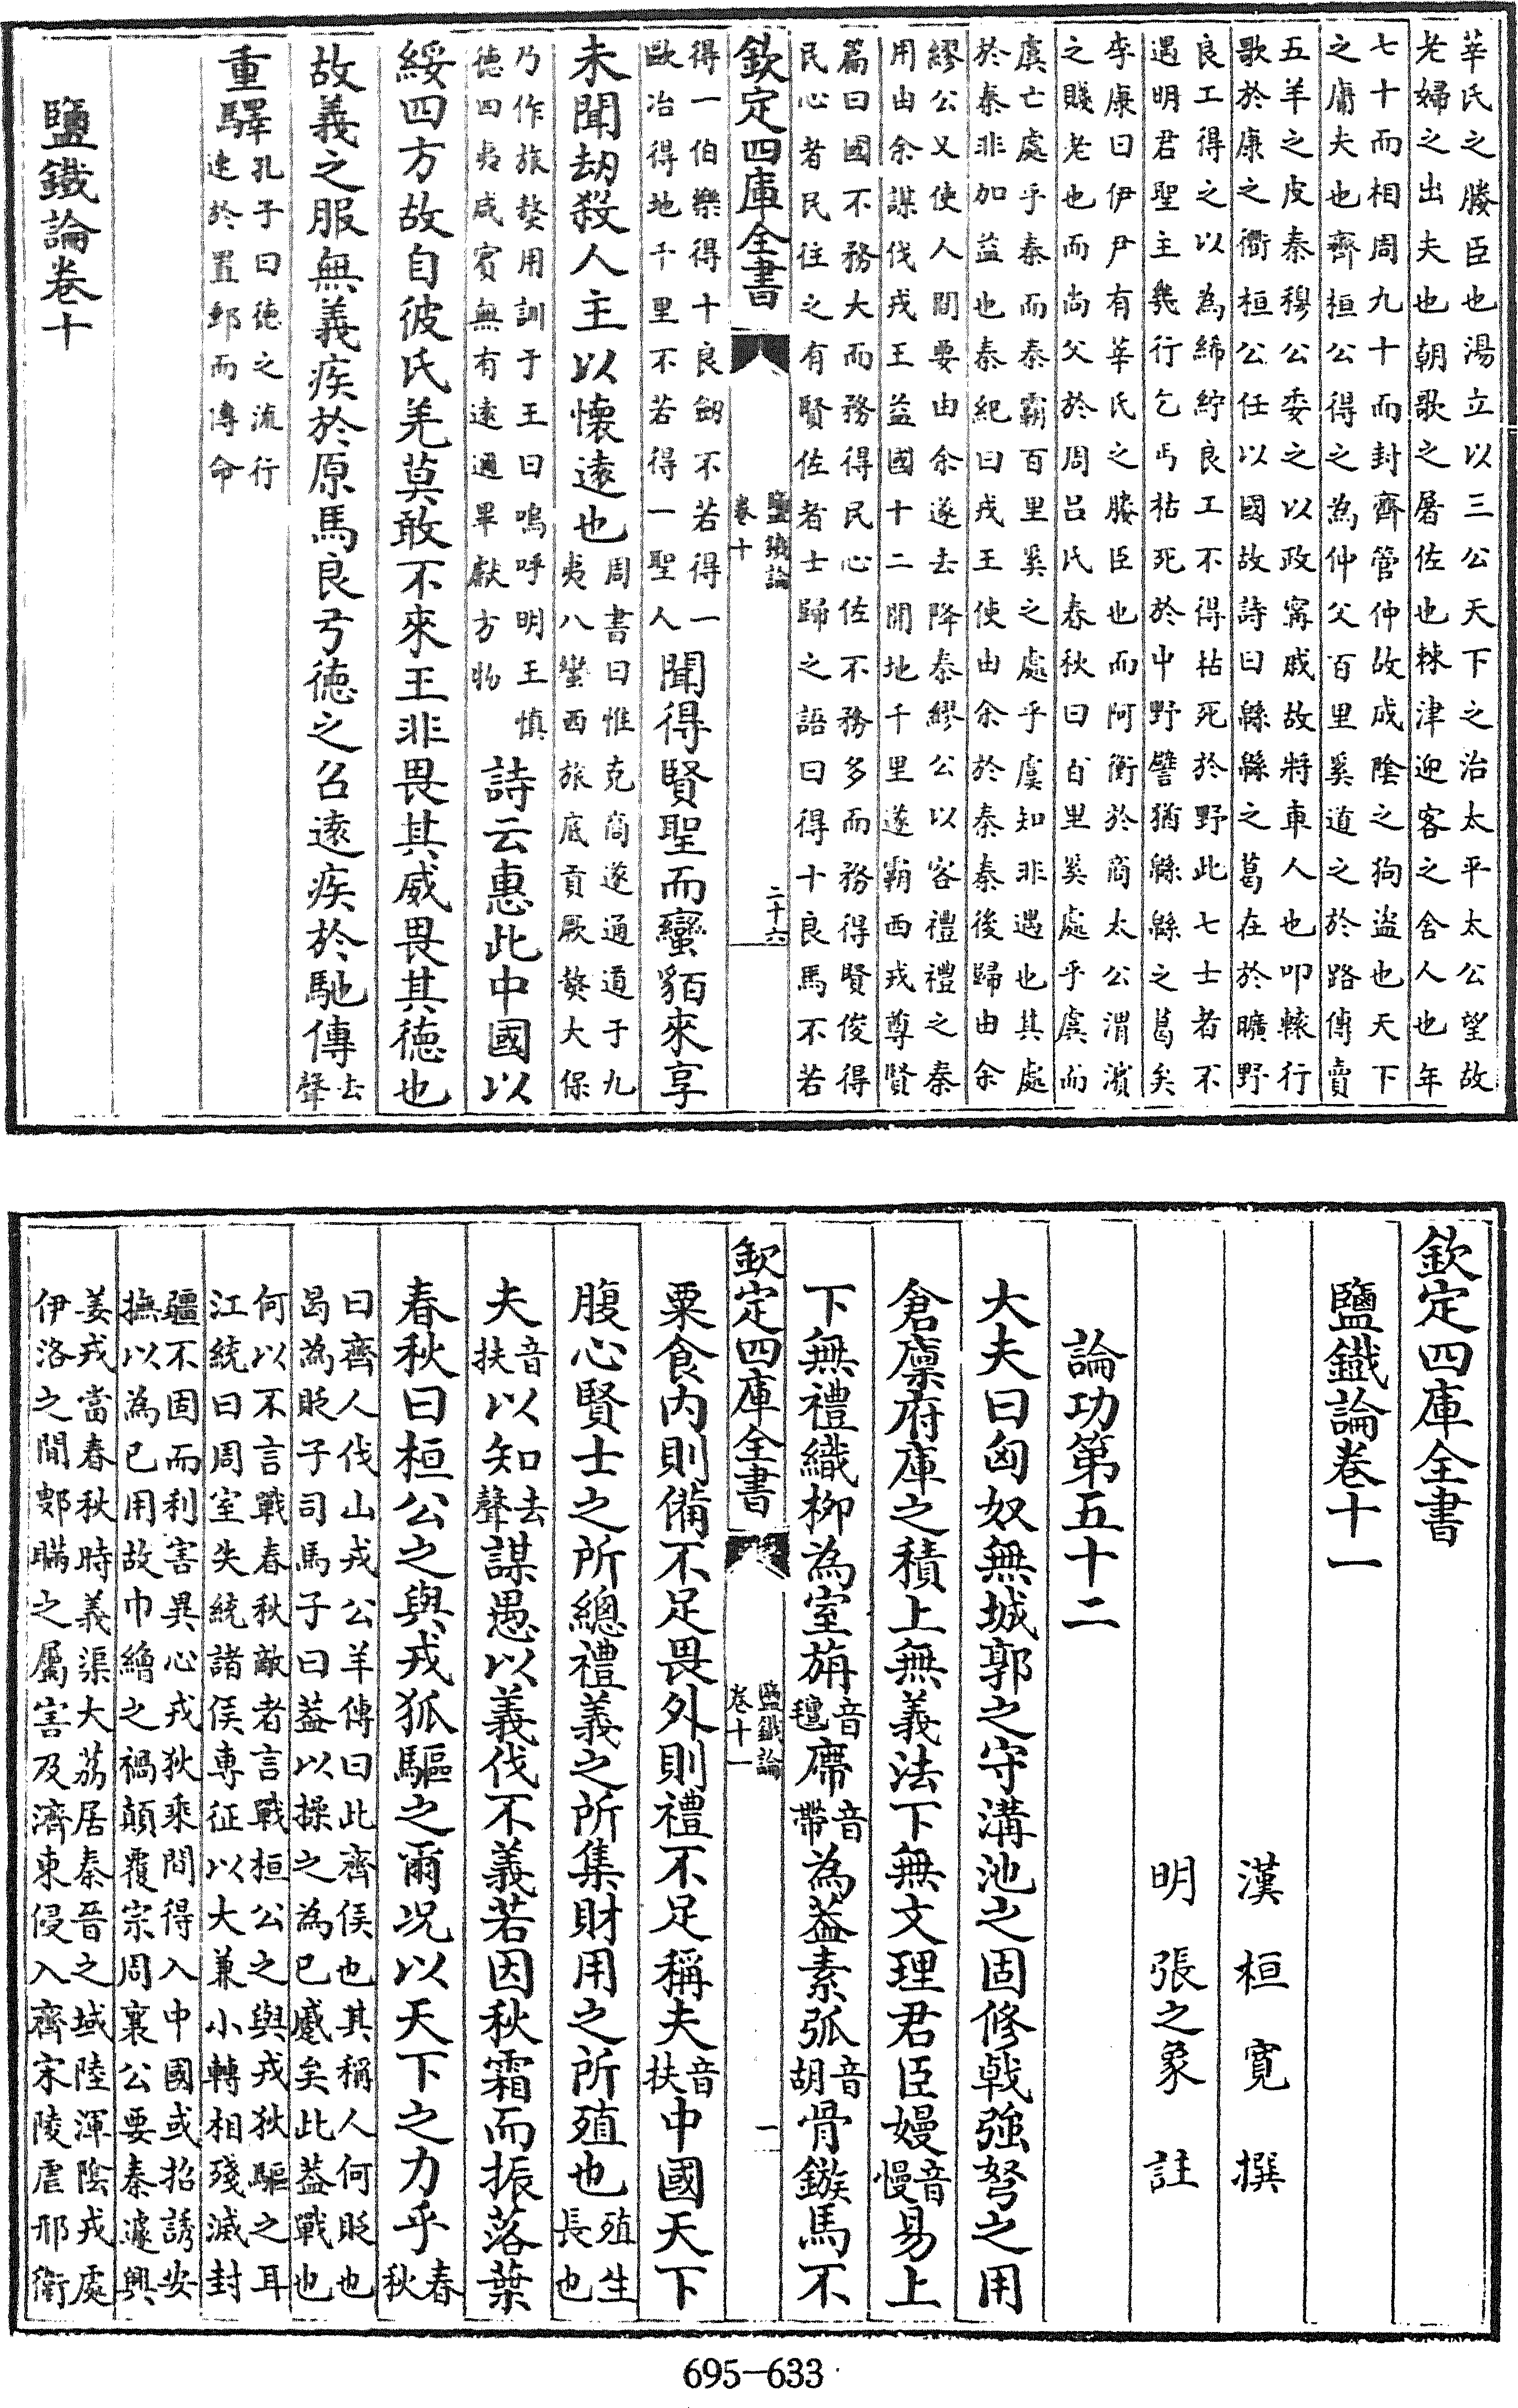 莘氏之媵臣也湯立以三公天下之治太平太公望故
老婦之出夫也朝歌之屠佐也棘津迎客之舍人也年
七十而相周九十而封齊管仲故成陰之狗盜也天下
之庸夫也齊桓公得之為仲父百里奚道之於路傳賣
五羊之皮秦穆公委之以政甯戚故將車人也叩轅行
歌於康之衢桓公任以國故詩曰緜緜之葛在於曠野
良工得之以為絺紵良工不得枯死於野此七士者不
遇明君聖主幾行乞丐枯死於中野譬猶緜緜之葛矣
李康曰伊尹有莘氏之媵臣也而阿衡於商太公渭濱
之賤老也而尚父於周呂氏春秋曰百里奚處乎虞而
虞亡處乎秦而秦霸百里奚之處乎虞知非遇也其處
於秦非加益也秦紀曰戎王使由余於秦秦後歸由余
繆公又使人間要由余遂去降秦繆公以客禮禮之秦
用由余謀伐戎王益國十二開地千里遂霸西戎尊賢
篇曰國不務大而務得民心佐不務多而務得賢俊得
民心者民往之有賢佐者士歸之語曰得十良馬不若
欽定四庫全書
鹽鐵論
卷十
二十六
得一伯樂得十良劒不若得一
歐冶得地千里不若得一聖人
聞得賢聖而蠻貊來享
未聞刧殺人主以懷遠也
周書曰惟克商遂通道于九
夷八蠻西旅底貢厥獒大保
乃作旅獒用訓于王曰嗚呼明王慎
德四夷咸賓無有遠邇畢獻方物
詩云惠此中國以
綏四方故自彼氐羌莫敢不來王非畏其威畏其德也
故義之服無義疾於原馬良弓德之召遠疾於馳傳
去
聲
重驛
孔子曰德之流行
速於置郵而傳命
鹽鐵論卷十
欽定四庫全書
鹽鐵論卷十一
漢 桓寬 撰
明 張之象 註
論功第五十二
大夫曰匈奴無城郭之守溝池之固修戟強弩之用
倉廩府庫之積上無義法下無文理君臣嫚
音
慢
易上
下無禮織柳為室旃
音
氊
席
音
帶
為葢素弧
音
胡
骨鏃馬不
欽定四庫全書
鹽鐵論
卷十一
一
粟食内則備不足畏外則禮不足稱夫
音
扶
中國天下
腹心賢士之所總禮義之所集財用之所殖也
殖生
長也
夫
音
扶
以知
去
聲
謀愚以義伐不義若因秋霜而振落葉
春秋曰桓公之與戎狐驅之爾况以天下之力乎
春
秋
曰齊人伐山戎公羊傳曰此齊侯也其稱人何貶也
曷為貶子司馬子曰葢以操之為已蹙矣此葢戰也
何以不言戰春秋敵者言戰桓公之與戎狄驅之耳
江統曰周室失統諸侯專征以大兼小轉相殘滅封
疆不固而利害異心戎狄乘間得入中國或招誘安
撫以為已用故巾繒之禍顛覆宗周襄公要秦遽興
姜戎當春秋時義渠大荔居秦晉之域陸渾陰戎處
伊洛之間鄋瞞之屬害及濟東侵入齊宋陵虐邢衛
695-633